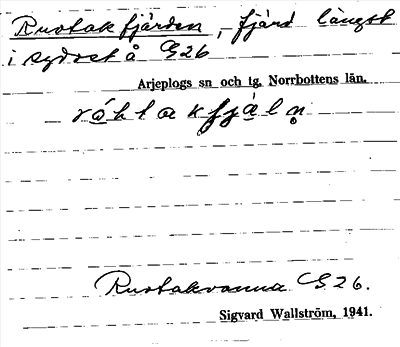 Rustakfjärden, fjärd längst
i sydost å G26
Arjeplogs sn och tg. Norrbottens län.
Rustakvanna G 26.
Sigvard Wallström, 1941.